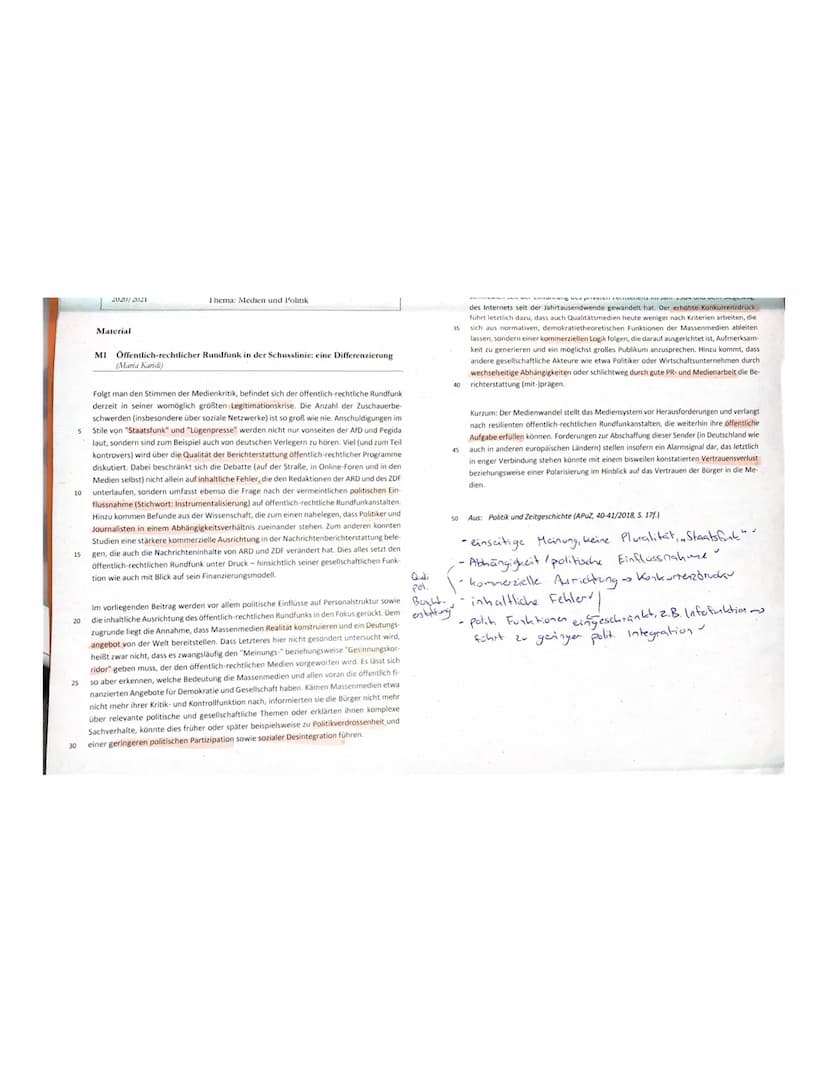 2020/2021 Thema: Medien und Politik
Material
M1 Öffentlich-rechtlicher Rundfunk in der Schusslinie: eine Differenzierung
(Maria Karidi)
Folgt man den Stimmen der Medienkritik, befindet sich der öffentlich-rechtliche Rundfunk
derzeit in seiner womöglich größten Legitimationskrise. Die Anzahl der Zuschauerbe-
schwerden (insbesondere über soziale Netzwerke) ist so groß wie nie. Anschuldigungen im
5 Stile von "Staatsfunk" und "Lügenpresse" werden nicht nur vonseiten der AfD und Pegida
laut, sondern sind zum Beispiel auch von deutschen Verlegern zu hören. Viel (und zum Teil
kontrovers) wird über die Qualität der Berichterstattung öffentlich-rechtlicher Programme
diskutiert. Dabei beschränkt sich die Debatte (auf der Straße, in Online-Foren und in den
Medien selbst) nicht allein auf inhaltliche Fehler, die den Redaktionen der ARD und des ZDF
10 unterlaufen, sondern umfasst ebenso die Frage nach der vermeintlichen politischen Ein-
flussnahme (Stichwort: Instrumentalisierung) auf öffentlich-rechtliche Rundfunkanstalten.
Hinzu kommen Befunde aus der Wissenschaft, die zum einen nahelegen, dass Politiker und
Journalisten in einem Abhängigkeitsverhältnis zueinander stehen. Zum anderen konnten
Studien eine stärkere kommerzielle Ausrichtung in der Nachrichtenberichterstattung bele-
15 gen, die auch die Nachrichteninhalte von ARD und ZDF verändert hat. Dies alles setzt den
öffentlich-rechtlichen Rundfunk unter Druck – hinsichtlich seiner gesellschaftlichen Funk-
tion wie auch mit Blick auf sein Finanzierungsmodell.
Im vorliegenden Beitrag werden vor allem politische Einflüsse auf Personalstruktur sowie
20 die inhaltliche Ausrichtung des öffentlich-rechtlichen Rundfunks in den Fokus gerückt. Dem
zugrunde liegt die Annahme, dass Massenmedien Realität konstruieren und ein Deutungs-
angebot von der Welt bereitstellen. Dass Letzteres hier nicht gesondert untersucht wird,
heißt zwar nicht, dass es zwangsläufig den "Meinungs-" beziehungsweise "Gesinnungskor-
ridor" geben muss, der den öffentlich-rechtlichen Medien vorgeworfen wird. Es lässt sich
25 so aber erkennen, welche Bedeutung die Massenmedien und allen voran die öffentlich fi-
nanzierten Angebote für Demokratie und Gesellschaft haben. Kämen Massenmedien etwa
nicht mehr ihrer Kritik- und Kontrollfunktion nach, informierten sie die Bürger nicht mehr
über relevante politische und gesellschaftliche Themen oder erklärten ihnen komplexe
Sachverhalte, könnte dies früher oder später beispielsweise zu Politikverdrossenheit und
30 einer geringeren politischen Partizipation sowie sozialer Desintegration führen.
des Internets seit der Jahrtausendwende gewandelt hat. Der erhöhte Konkurrenzdruck
führt letztlich dazu, dass auch Qualitätsmedien heute weniger nach Kriterien arbeiten, die
35 sich aus normativen, demokratietheoretischen Funktionen der Massenmedien ableiten
lassen, sondern einer kommerziellen Logik folgen, die darauf ausgerichtet ist, Aufmerksam-
keit zu generieren und ein möglichst großes Publikum anzusprechen. Hinzu kommt, dass
andere gesellschaftliche Akteure wie etwa Politiker oder Wirtschaftsunternehmen durch
wechselseitige Abhängigkeiten oder schlichtweg durch gute PR- und Medienarbeit die Be-
40 richterstattung (mit-)prägen.
Kurzum: Der Medienwandel stellt das Mediensystem vor Herausforderungen und verlangt
nach resilienten öffentlich-rechtlichen Rundfunkanstalten, die weiterhin ihre öffentliche
Aufgabe erfüllen können. Forderungen zur Abschaffung dieser Sender (in Deutschland wie
45 auch in anderen europäischen Ländern) stellen insofern ein Alarmsignal dar, das letztlich
in enger Verbindung stehen könnte mit einem bisweilen konstatierten Vertrauensverlust
beziehungsweise einer Polarisierung im Hinblick auf das Vertrauen der Bürger in die Me-
dien.
50 Aus: Politik und Zeitgeschichte (APuZ, 40-41/2018, S. 17f.)
- einseitige Meinung, keine Pluralität, „Staatsfunk"
- Abhängigkeit / politische Einflussnahme
- kommerzielle Ausrichtung → Konkurrenzdruck
- inhaltliche Fehler
- polit. Funktionen eingeschränkt, z.B. Infofunktion →
führt zu geringer polit. Integration
Quali
pol.
Bericht-
erstattung